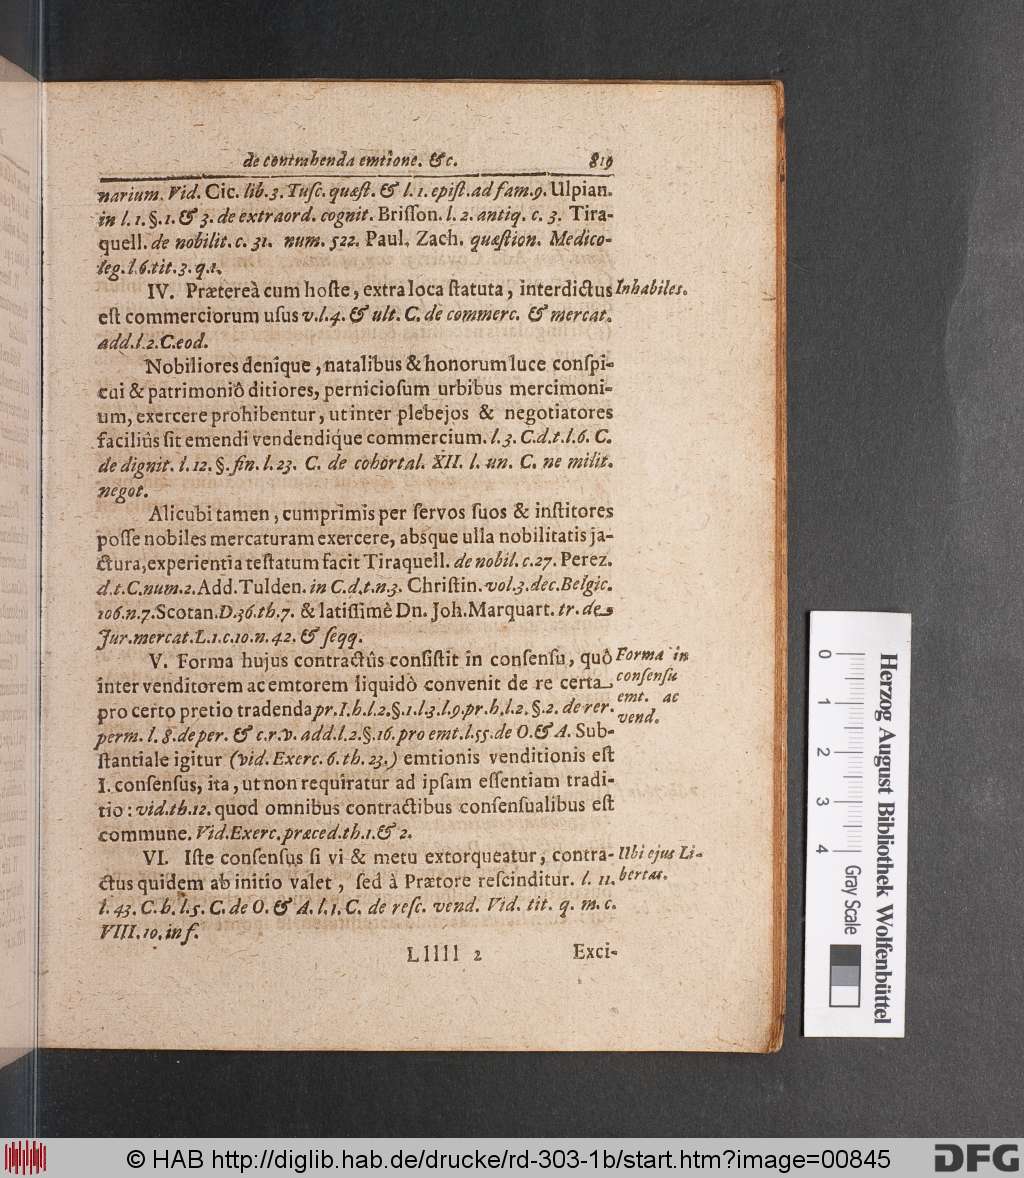 de contrahenda emtione. &c. 819
narium. Vid. Cic. lib. 3. Tuſc. quæſt. & l. 1. epiſt. ad fam. 9. Ulpian.
in l. 1. §. 1. & 3. de extraord. cognit. Briſſon. l. 2. antiq. c. 3. Tira-
quell. de nobilit. c. 31. num. 522. Paul. Zach. quæſtion. Medico-
leg. l. 6. tit. 3. q. 1.
IV. Prætereà cum hoſte, extra loca ſtatuta, interdictus
Inhabiles.
eſt commerciorum uſus v. l. 4. & ult. C. de commerc. & mercat.
add. l. 2. C. eod.
Nobiliores denique, natalibus & honorum luce conſpi-
cui & patrimoniô ditiores, pernicioſum urbibus mercimoni-
um, exercere prohibentur, ut inter plebejos & negotiatores
faciliùs ſit emendi vendendiq́ue commercium. l. 3. C. d. t. l. 6. C.
de dignit. l. 12. §. fin. l. 23. C. de cohortal. XII. l. un. C. ne milit.
negot.
Alicubi tamen, cumprimis per ſervos ſuos & inſtitores
poſſe nobiles mercaturam exercere, absque ulla nobilitatis ja-
ctura, experientia teſtatum facit Tiraquell. de nobil. c. 27. Perez.
d. t. C. num. 2. Add. Tulden. in C. d. t. n. 3. Chriſtin. vol. 3. dec. Belgic.
106. n. 7. Scotan. D. 36. th. 7. & latiſſimè Dn. Joh. Marquart. tr. de
Jur. mercat. L. 1. c. 10. n. 42. & ſeqq.
V. Forma hujus contractûs conſiſtit in conſenſu, quô
Forma in
conſenſu
emt. ac
vend.
inter venditorem ac emtorem liquidò convenit de re certa
pro certo pretio tradenda pr. I. h. l. 2. §. 1. l. 3. l. 9. pr. h. l. 2. §. 2. de rer.
perm. l. 8. de per. & c. r. v. add. l. 2. §. 16. pro emt. l. 55. de O. & A. Sub-
ſtantiale igitur (vid. Exerc. 6. th. 23.) emtionis venditionis eſt
I. conſenſus, ita, ut non requiratur ad ipſam eſſentiam tradi-
tio: vid. th. 12. quod omnibus contractibus conſenſualibus eſt
commune. Vid. Exerc. præced. th. 1. & 2.
VI. Iſte conſenſus ſi vi & metu extorqueatur, contra-
Ubi ejus Li-
bertas.
ctus quidem ab initio valet, ſed à Prætore reſcinditur. l. 11.
l. 43. C. h. l. 5. C. de O. & A. l. 1. C. de reſc. vend. Vid. tit. q. m. c.
VIII. 10. inf.
Lllll 2 Exci-
0 1 2 3 4
Herzog August Bibliothek Wolfenbüttel
Gray Scale
© HAB http://diglib.hab.de/drucke/rd-303-1b/start.htm?image=00845
DFG